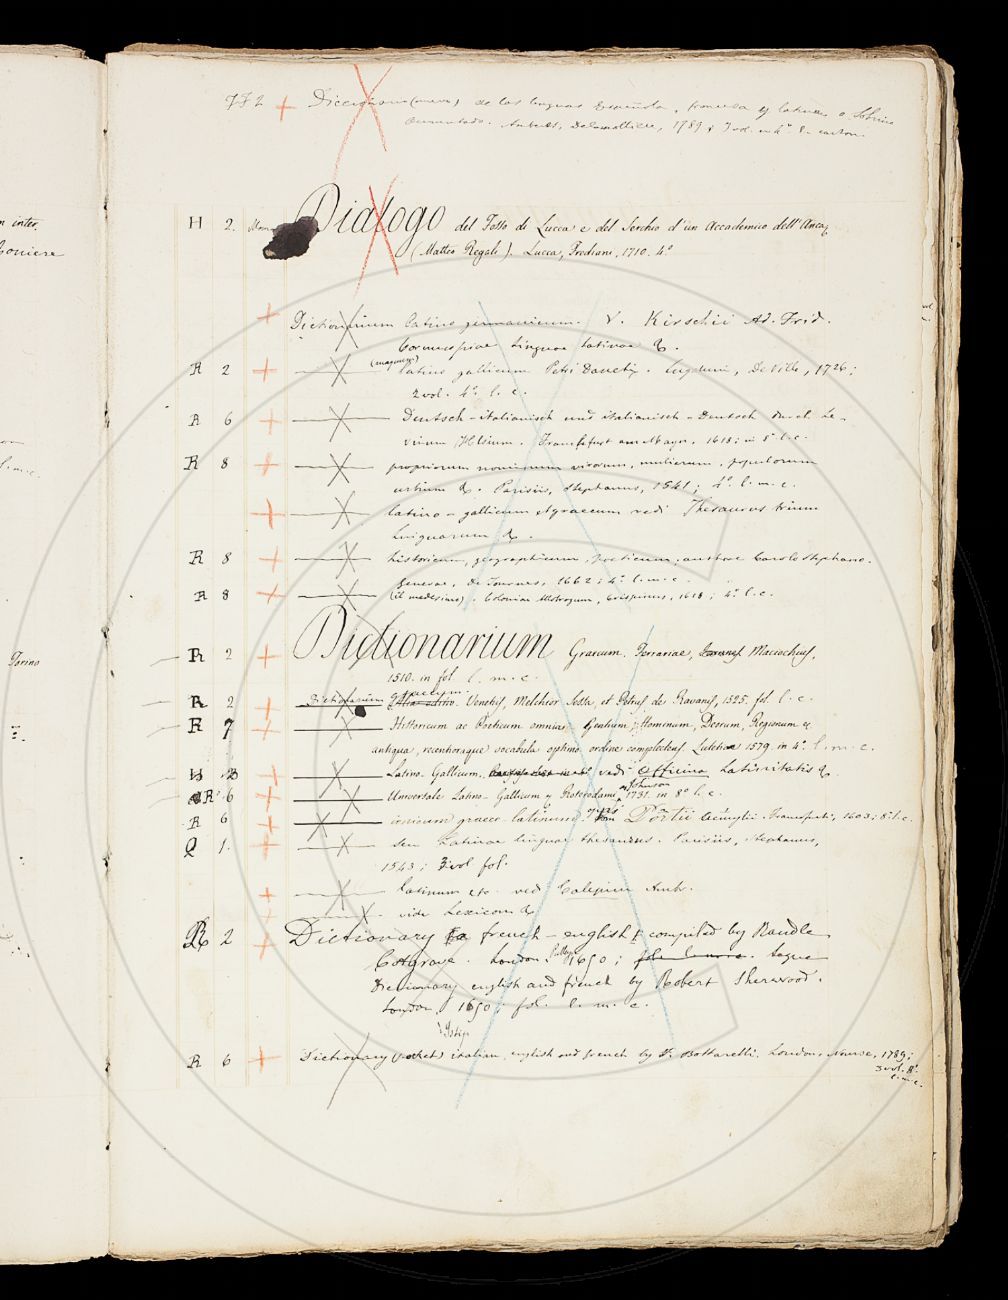 772 + Diccionario (nuevo) de las lenguas Española, francesa y latina
aumentado. 1789; 3 vol. in 4°
H 2. Dialogo del Fosso di Lucca e del Serchio d'un Accademico dell'Anca
(Matteo Regali). Lucca, Frediani, 1710. 4°
n inter.
+ Dictionarium latino germanicum. V. Kirschii Ad. Frid.
Cornucopiae linguae latinae &.
R 2 + (magnum) latino gallicum Petri Danetii. Lugduni, Deville, 1726;
2 vol. 4°. l. c.
R 6 + Deutsch-italianisch und italianisch-Deutsch durch Le-
vinum Hulsium. Franckfurt am Mayn, 1618; in 8° l. c.
R 8 + propriorum nominum virorum, mulierum, populorum
urbium &. Parisiis, Stephanus, 1541; 4°. l. m. c.
+ latino-gallicum et graecum vedi Thesaurus trium
linguarum &.
R 8 + historicum, geographicum, poeticum, auctore Carolo Stephano.
Genevae, de Tournes, 1662; 4°. l. m. c.
R 8 + (il medesimo). Coloniae Allobrogum, Crispinus, 1618; 4°. l. c.
R 2 + Dictionarium Graecum. Ferrariae, Maciochus,
1510. in fol. l. m. c.
Torino
R 2 + Dictionarium graecum Venetiis, Melchior Sessa, et Petrus de Ravanis, 1525. fol. l. c.
R 7 + Historicum ac Poeticum omnia Gentium, Hominum, Deorum, Regionum &
antiqua, recentioraque vocabula optimo ordine complectens. Lutetiae 1579. in 4°. l. m. c.
+ Latino-Gallicum, vedi Officina Latinitatis &.
R 6 + Universale Latino-Gallicum &. Roterodami, Johnson 1731. in 8° l. c.
R 6 + ionicum graeco-latinum. Portii Aemylii. Francofurti, 1603; 8° l. c.
Q 1. + seu Latinae linguae thesaurus. Parisiis, Stephanus,
1543; 3 vol fol.
+ latinum etc. vedi Calepini Amb.
+ vide Lexicon &
R 2 + Dictionary french-english compiled by Randle
Cotgrave. London, 1650;
Dictionary english and french by Robert Sherwood.
London, 1650; fol. l. m. c.
R 6 + Dictionary (pocket) italian, english and french by F. Bottarelli. London, Nourse, 1789;
3 vol. 8°.
l. m. c.